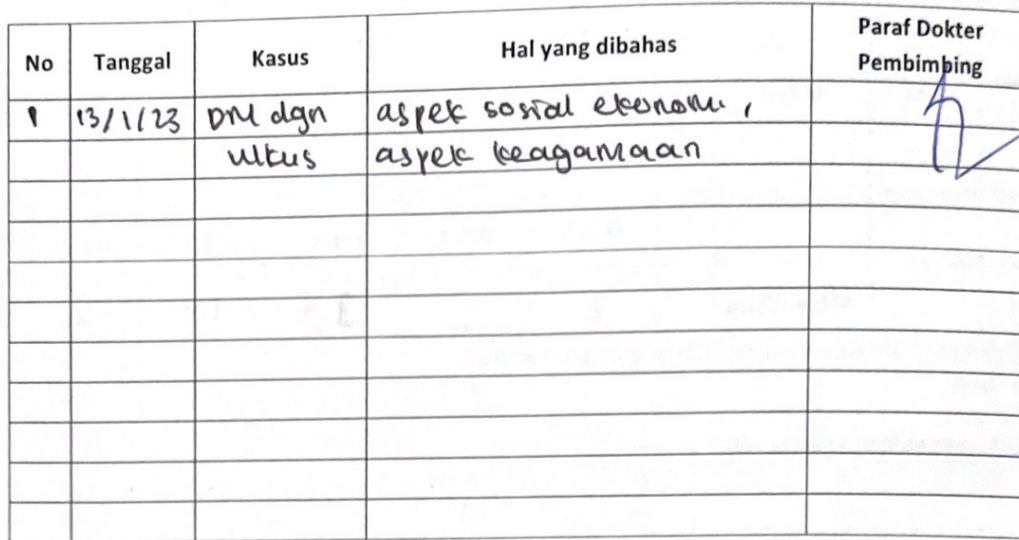 No Tanggal Kasus Hal yang dibahas Paraf Dokter Pembimbing
1 13/1/23 DM dgn aspek sosial ekonomi,
ulkus aspek keagamaan